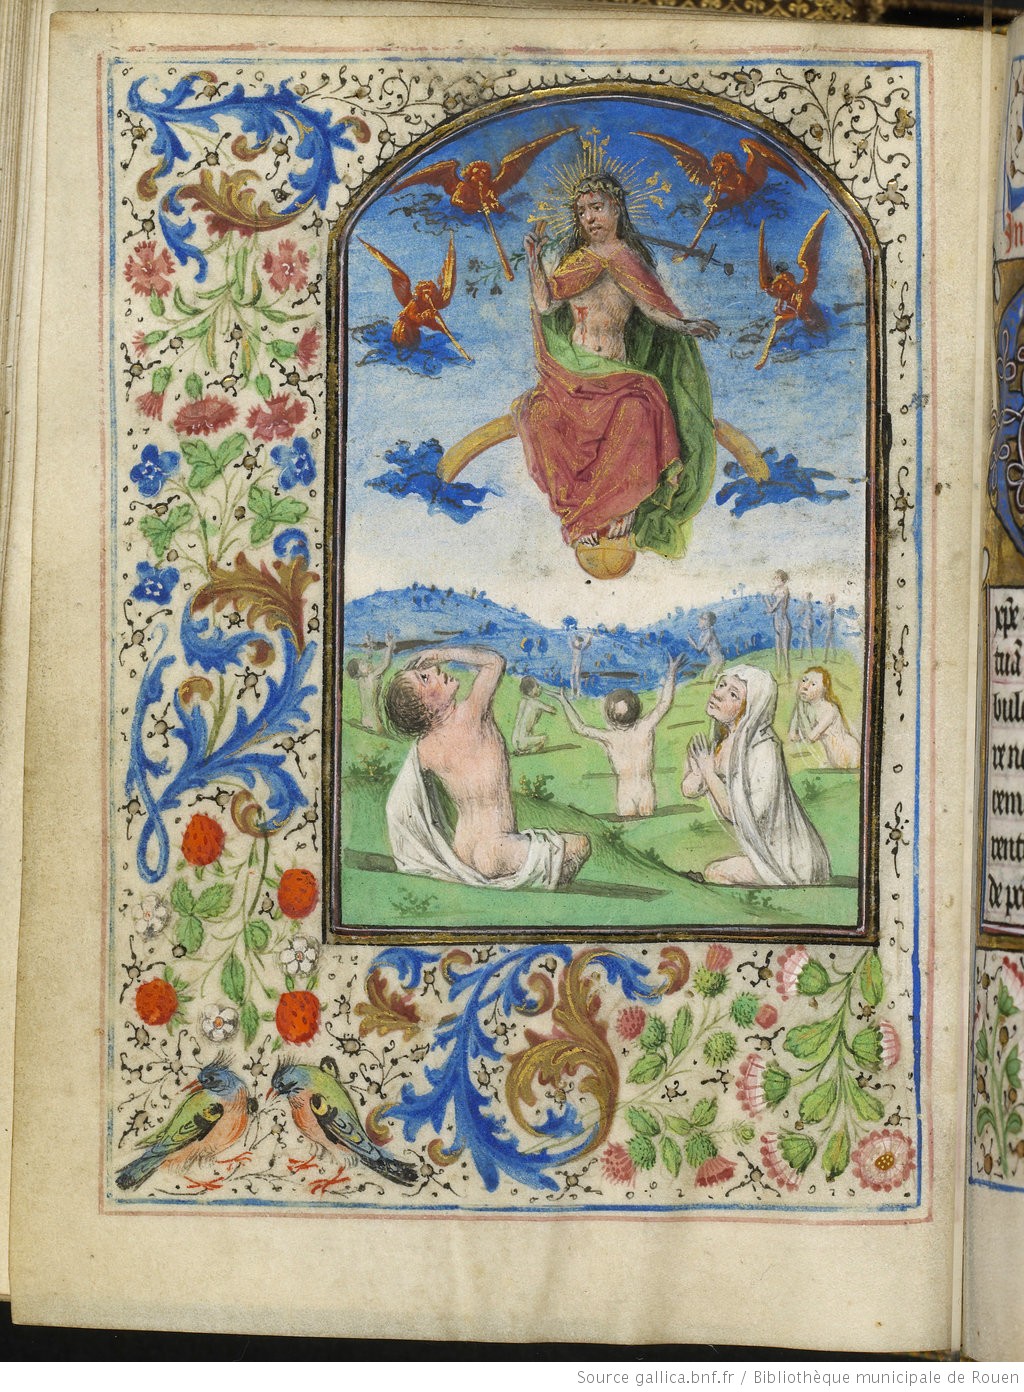 In
xpe
tuā
bul
re n
tem
rent
de pe
Source gallica.bnf.fr / Bibliothèque municipale de Rouen